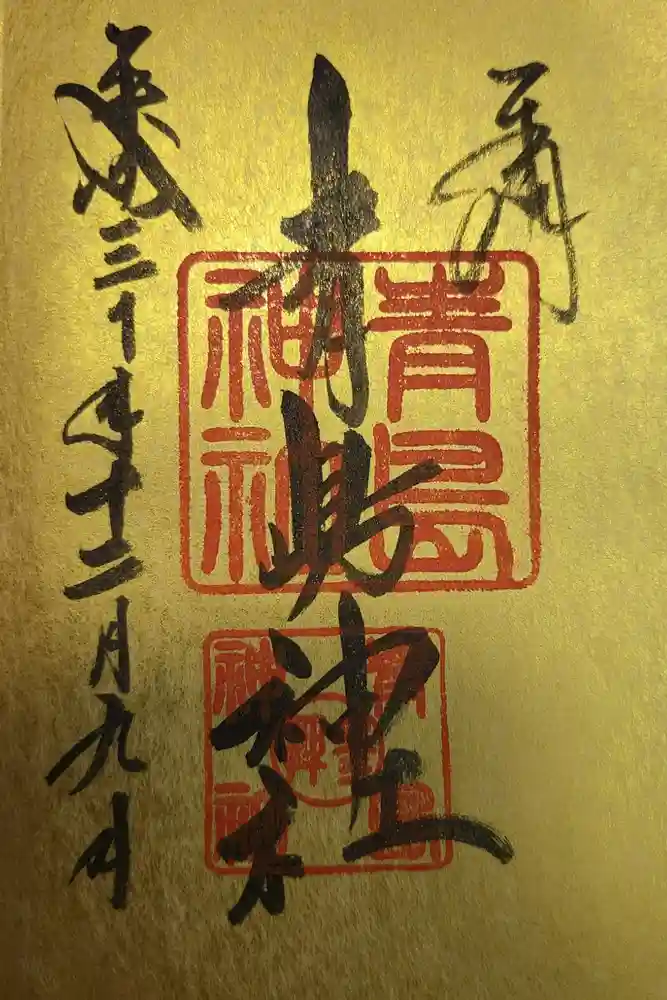 奉拝
青嶋神社
平成三十年十二月九日
青島
神社
青島
神社